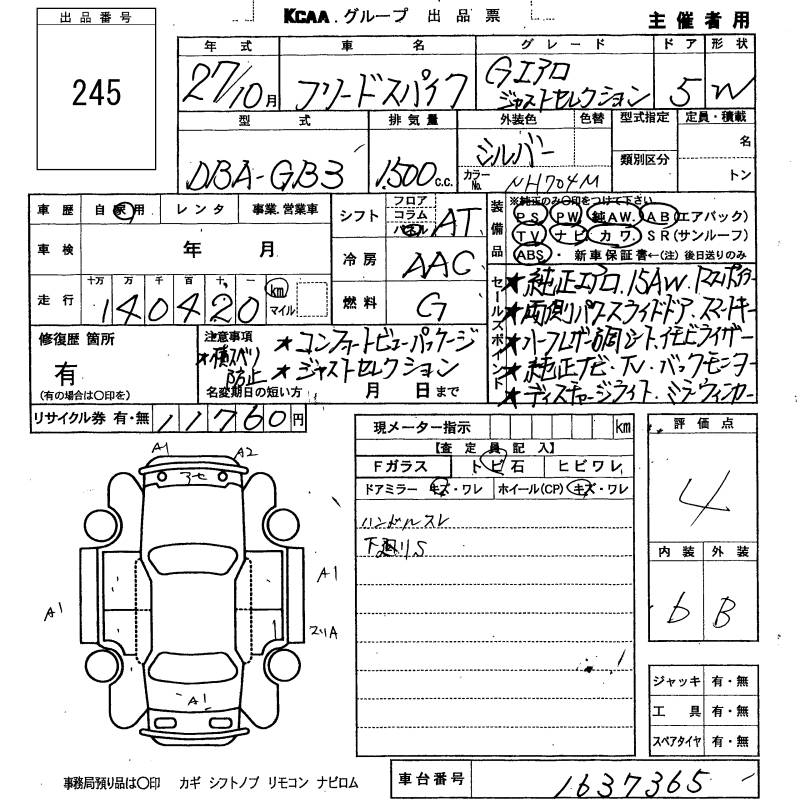 KCAA グループ 出品票
主催者用
出品番号
245
年式 車名 グレード ドア 形状
27/10月 フリードスパイク Gエアロ ジャストセレクション 5 W
型式 排気量 外装色 色替 型式指定 定員・積載
DBA-GB3 1,500c.c. シルバー 名
カラーNo. NH704M 類別区分 トン
車歴 自家用 レンタ 事業.営業車
シフト フロア コラム パネル AT
車検 年 月
冷房 AAC
走行 十万 万 千 百 十 一
140420 km マイル
燃料 G
装備品 ※純正のみ〇印をつけて下さい
PS PW 純AW. AB(エアバック)
TV ナビ カワ. SR(サンルーフ)
ABS・新車保証書←(注)後日送りのみ
セールスポイント
★純正エアロ.15AW.
★両側パワースライドドア.スマートキー
★ハーフレザー調シート.イモビライザー
★純正ナビ・TV.バックモニター
★ディスチャージライト.ミラーウィンカー
修復歴 箇所
有
(有の場合は〇印を)
注意事項
★横スベリ防止
★コンフォートビューパッケージ
★ジャストセレクション
名変期日の短い方 月 日まで
リサイクル券 有・無 11760円
現メーター指示 km
【査定員記入】
Fガラス トビ石 ヒビワレ
ドアミラー キズ・ワレ ホイール(CP) キズ・ワレ
ハンドルスレ
下廻りS
評価点
4
内装 外装
b B
A1 A2
A1
A1
A1
ジャッキ 有・無
工具 有・無
スペアタイヤ 有・無
事務局預り品は〇印 カギ シフトノブ リモコン ナビロム
車台番号 1637365